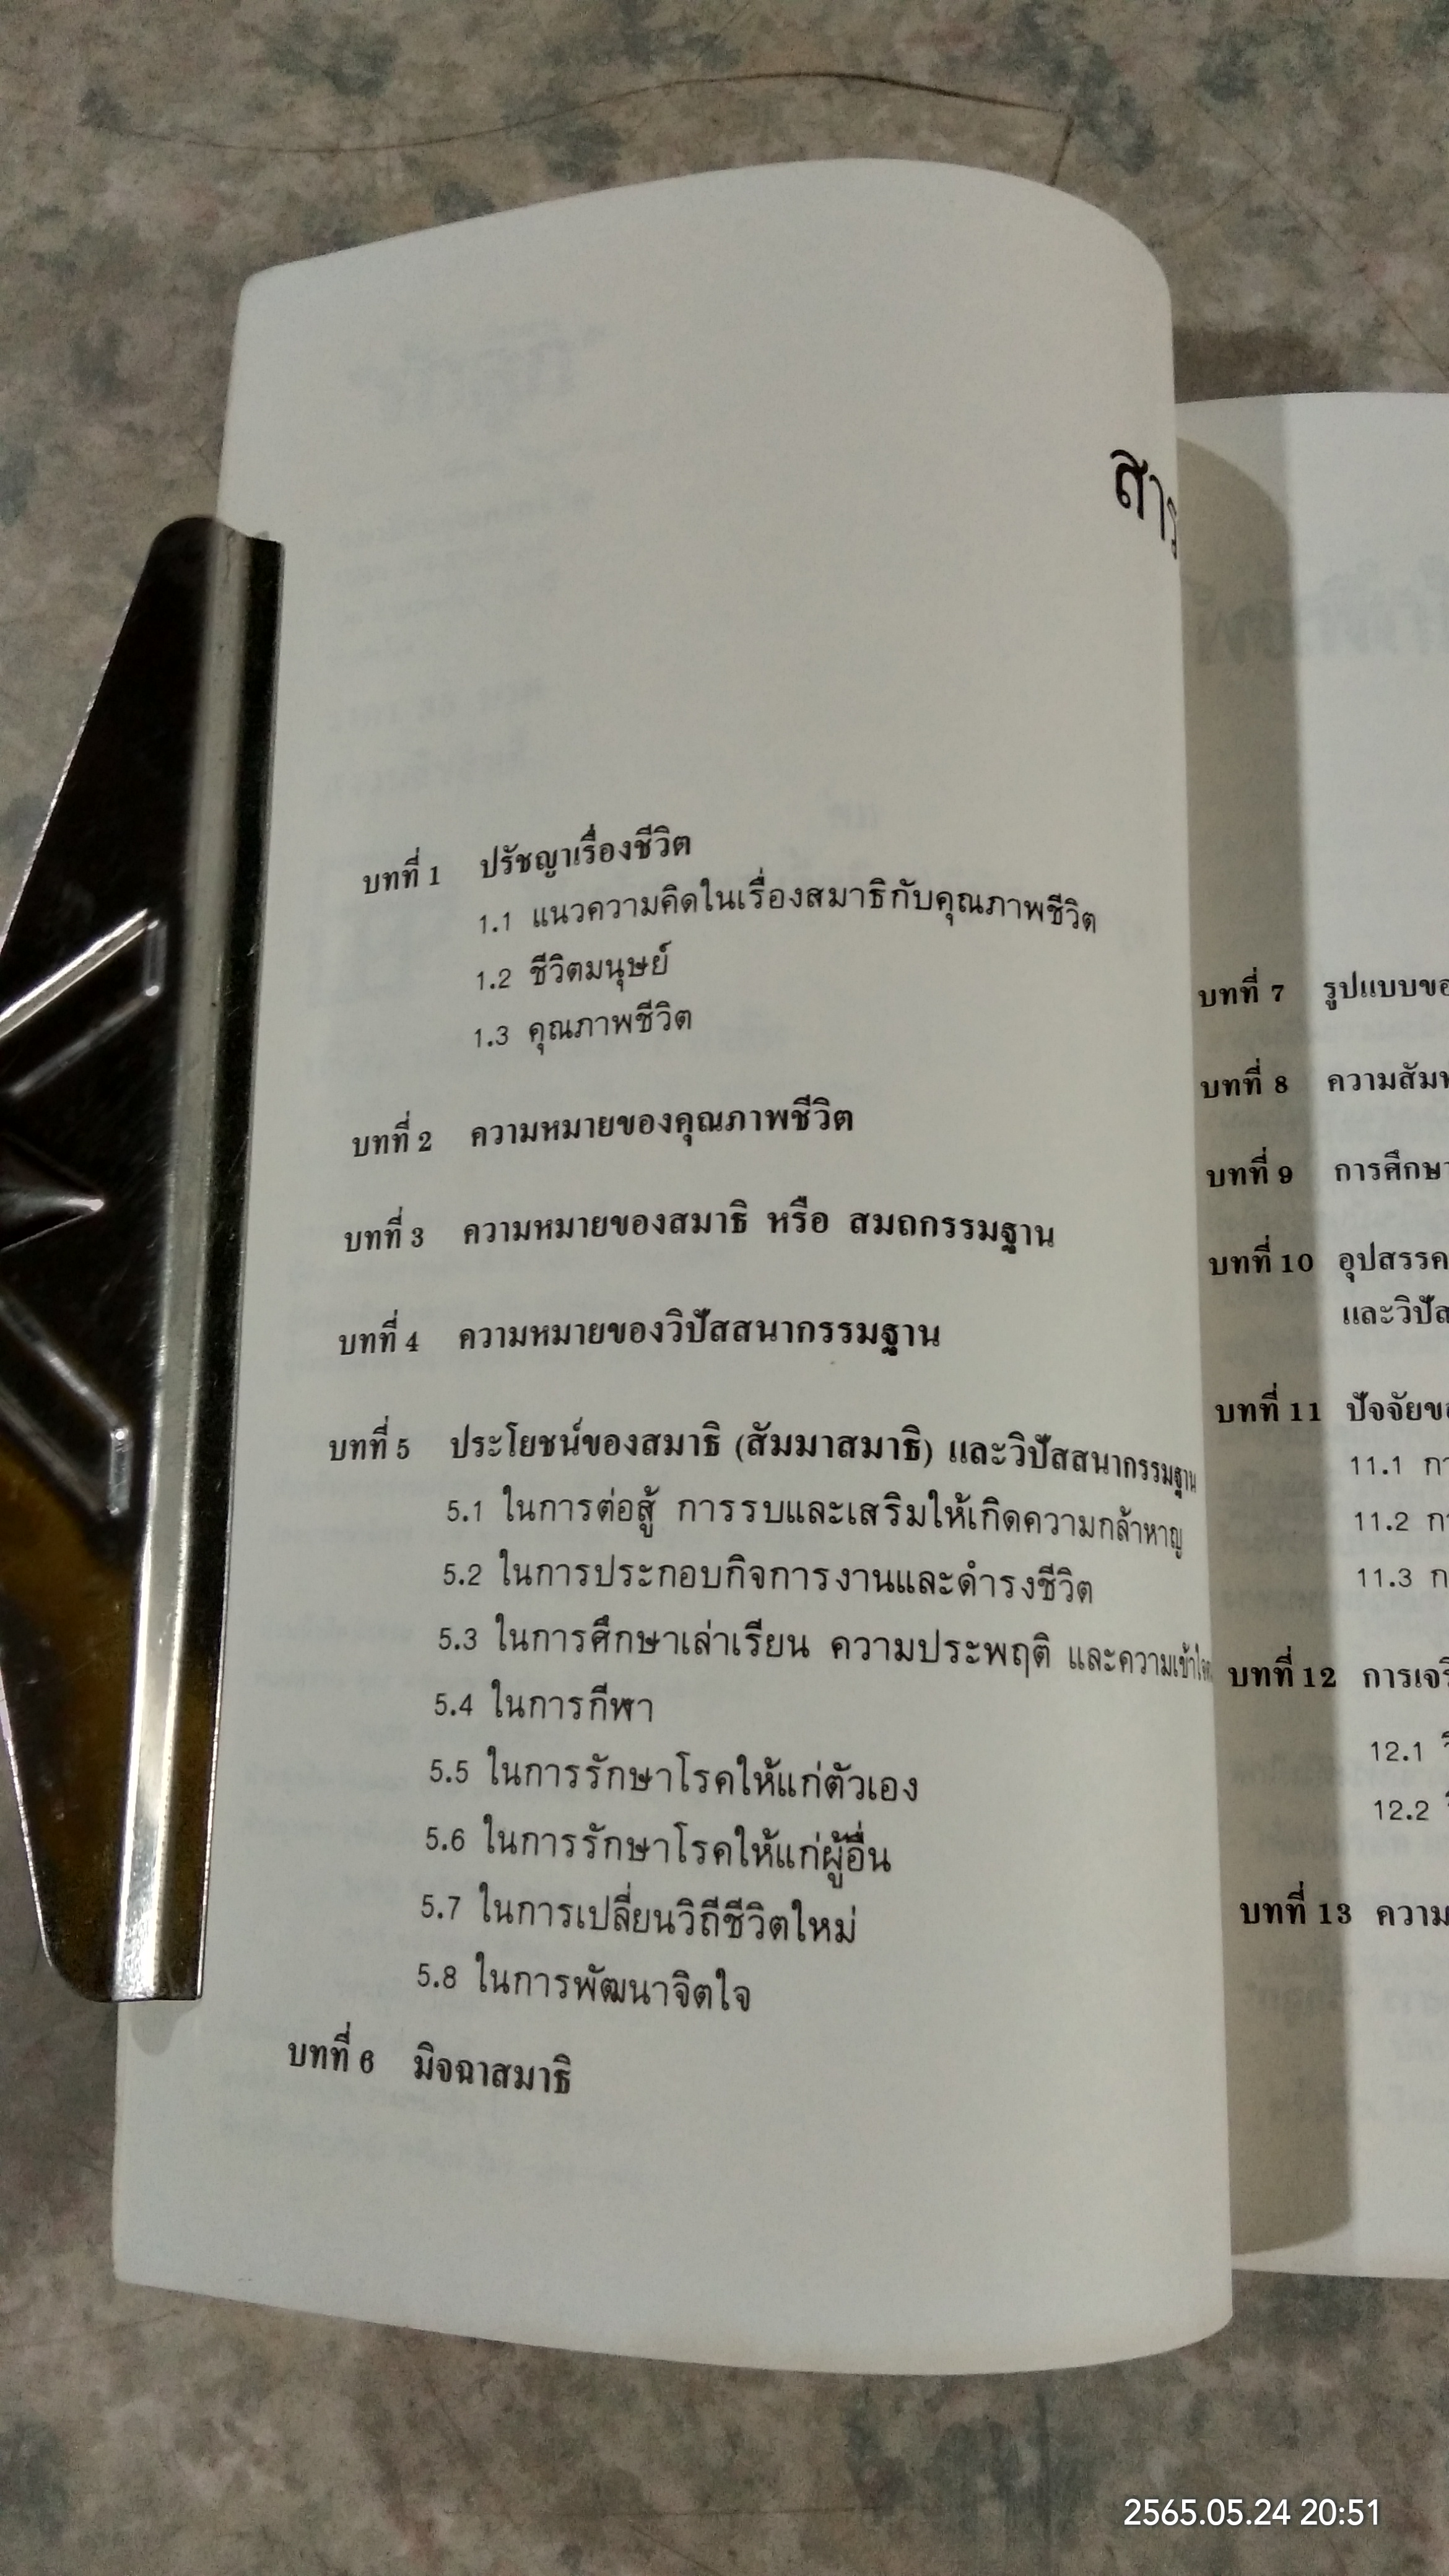 บทที่ 1 ปรัชญาเรื่องชีวิต
1.1 แนวความคิดในเรื่องสมาธิกับคุณภาพชีวิต
1.2 ชีวิตมนุษย์
1.3 คุณภาพชีวิต
บทที่ 2 ความหมายของคุณภาพชีวิต
บทที่ 3 ความหมายของสมาธิ หรือ สมถกรรมฐาน
บทที่ 4 ความหมายของวิปัสสนากรรมฐาน
บทที่ 5 ประโยชน์ของสมาธิ (สัมมาสมาธิ) และวิปัสสนากรรมฐาน
5.1 ในการต่อสู้ การรบและเสริมให้เกิดความกล้าหาญ
5.2 ในการประกอบกิจการงานและดำรงชีวิต
5.3 ในการศึกษาเล่าเรียน ความประพฤติ และความเข้าใจ
5.4 ในการกีฬา
5.5 ในการรักษาโรคให้แก่ตัวเอง
5.6 ในการรักษาโรคให้แก่ผู้อื่น
5.7 ในการเปลี่ยนวิถีชีวิตใหม่
5.8 ในการพัฒนาจิตใจ
บทที่ 6 มิจฉาสมาธิ
บทที่ 7 รูปแบบ
บทที่ 8
บทที่ 9 การศึกษา
บทที่ 10 อุปสรรค
บทที่ 11 ปัจจัย
11.1
11.2
11.3
บทที่ 12
12.1
12.2
บทที่ 13 ความ
2565.05.24 20:51